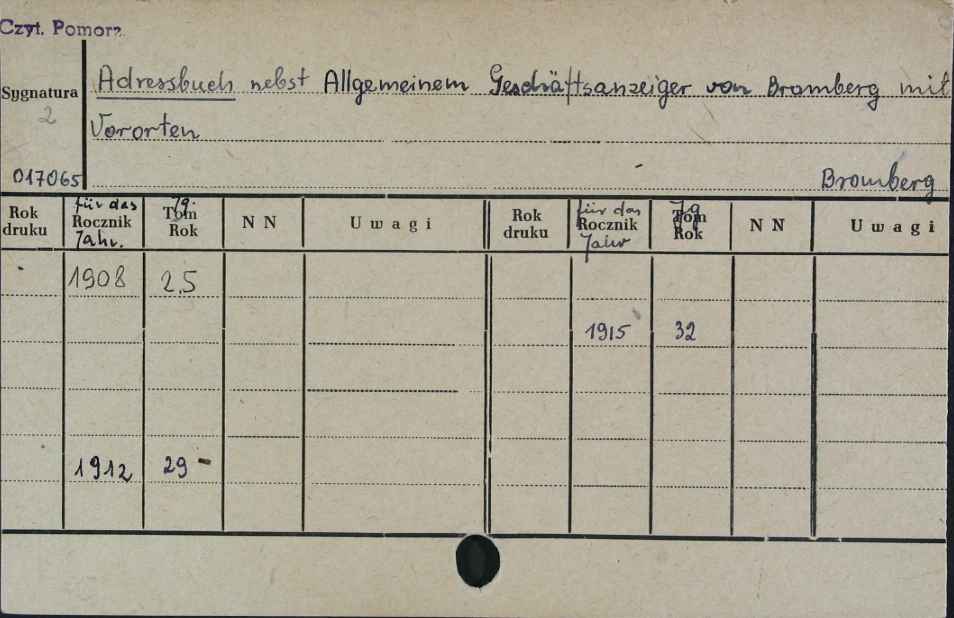 Czyt. Pomorz.
Adressbuch nebst Allgemeinem Geschäftsanzeiger von Bromberg mit
Sygnatura
2
Vororten
017065
Bromberg
Rok druku für das Rocznik Jahr. Jg. Tom Rok N N Uwagi Rok druku für das Rocznik Jahr Jg Tom Rok N N Uwagi
1908 25
1915 32
1912 29